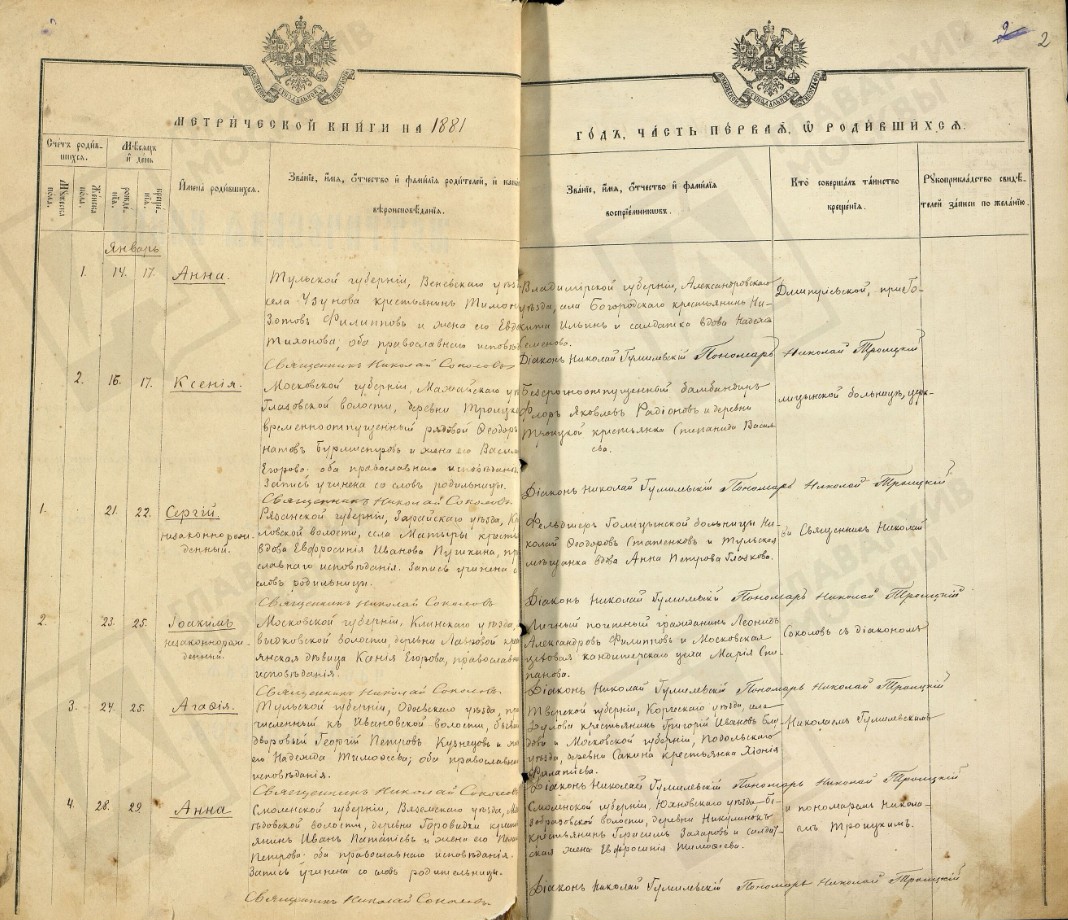 2
2
МЕТРИЧЕСКОЙ КНИГИ НА 1881
ГОДЪ, ЧАСТЬ ПЕРВАЯ, Ѡ РОДИВШИХСЯ.
Счетъ родив-
шихся.
Мужеска пола.
Женска пола.
Мѣсяцъ и день
рожде-
нія.
креще-
нія.
Имена родившихся.
Званіе, имя, отчество и фамилія родителей, и
вѣроисповѣданія.
Званіе, имя, отчество и фамилія
воспріемниковъ.
Кто совершалъ таинство
крещенія.
Рукоприкладство свидѣ-
телей записи по желанію.
Январь
1. 14. 17. Анна.
Тульской губерніи, Веневскаго
села Узунова крестьянинъ Тимоѳ
Зотовъ Филипповъ и жена его Евд
Тихонова; оба православнаго
Священникъ Николай Соколовъ
Владимірской губерніи, Александровскаго
уѣзда, села Богородскаго крестьянинъ Ни-
кита Ильинъ и солдатка вдова Надежда
Семенова.
Діаконъ Николай Гумилевскій Пономарь Николай Троицкій
при Го-
2. 16. 17. Ксенія.
Московской губерніи, Можайскаго
волости, деревни Троицкой
временноотпущенный рядовой Ѳеодоръ
и жена его Васил
Егорова; оба православнаго исповѣданія.
Запись учинена со словъ родильницы.
Священникъ Николай Соколовъ
Безсрочноотпущенный
Флоръ Яковлевъ Радіоновъ и деревни
Троицкой крестьянка Степанида Василь-
ева.
Діаконъ Николай Гумилевскій Пономарь Николай Троицкій
лицынской больницѣ, церк-
1. 21. 22. Сергій
незаконнорож-
денный.
Рязанской губерніи, Зарайскаго уѣзда,
ловской волости, села Матыры
вдова Евфросинія Иванова Пушкина, пра
славнаго исповѣданія. Запись учинена
словъ родильницы.
Священникъ Николай Соколовъ
Фельдшеръ Голицынской больницы Ни-
колай Ѳеодоровъ и Тульская
мѣщанка вдова Анна Петрова Глазкова.
Діаконъ Николай Гумилевскій Пономарь Николай Троицкій
ви Священникъ Николай
2. 23. 25. Іоакимъ
незаконнорож-
денный.
Московской губерніи, Клинскаго уѣзда,
волости, деревни
янская дѣвица Ксенія Егорова, православнаго
исповѣданія.
Священникъ Николай Соколовъ.
Личный почетный гражданинъ Леонидъ
Александровъ Филипповъ и Московская
цеховая кондитерскаго цеха Марія Сте-
панова.
Діаконъ Николай Гумилевскій Пономарь Николай Троицкій
Соколовъ съ діакономъ
3. 24. 25. Агаѳія.
Тульской губерніи, Одоевскаго уѣзда, при
численный къ Ивановской волости,
дворовый Георгій Петровъ Кузнецовъ и жена
его Надежда Тимоѳеева; оба православнаго
исповѣданія.
Священникъ Николай Соколовъ
Тверской губерніи, Корчевскаго уѣзда, села
крестьянинъ Григорій Ивановъ
и Московской губерніи, Подольскаго
уѣзда, деревни Сакина крестьянка Хіонія
Филатіева.
Діаконъ Николай Гумилевскій Пономарь Николай Троицкій
Николаемъ Гумилевскимъ
4. 28. 29. Анна
Смоленской губерніи, Вяземскаго уѣзда,
волости, деревни
янинъ Иванъ и жена его
Петрова; оба православнаго исповѣданія.
Запись учинена со словъ родительницы.
Священникъ Николай Соколовъ.
Смоленской губерніи, Юхновскаго уѣзда
волости, деревни Никулинокъ
крестьянинъ Герасимъ Захаровъ и солдат-
ская жена Евфросинія Тимоѳеева.
Діаконъ Николай Гумилевскій Пономарь Николай Троицкій
и пономаремъ Никола-
емъ Троицкимъ.
ГЛАВАРХИВ
МОСКВЫ